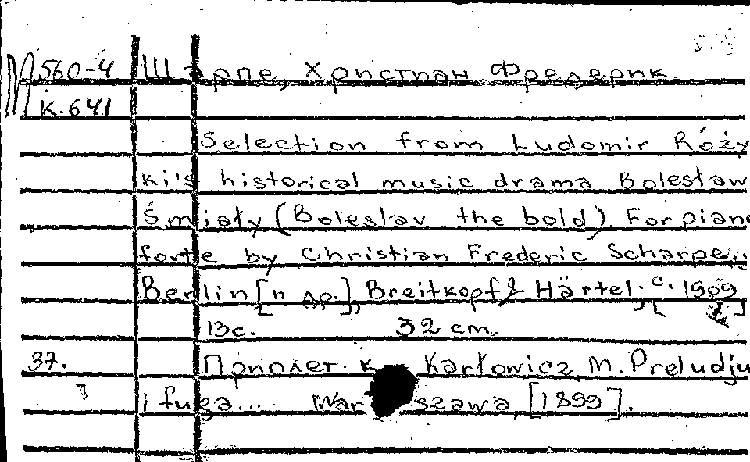 М 560-4 Шарпе, Христиан Фредерик.
К.641
Selection from Ludomir Róży
ki's historical music drama Bolesław
Śmiały (Boleslav the bold). For piano
forte by Christian Frederic Scharpe.
Berlin [и др.], Breitkopf & Härtel. c. 1909
13с. 32 cm.
37. Приплет. к Karłowicz, M. Preludju
i fuga.... Warszawa, [1899].